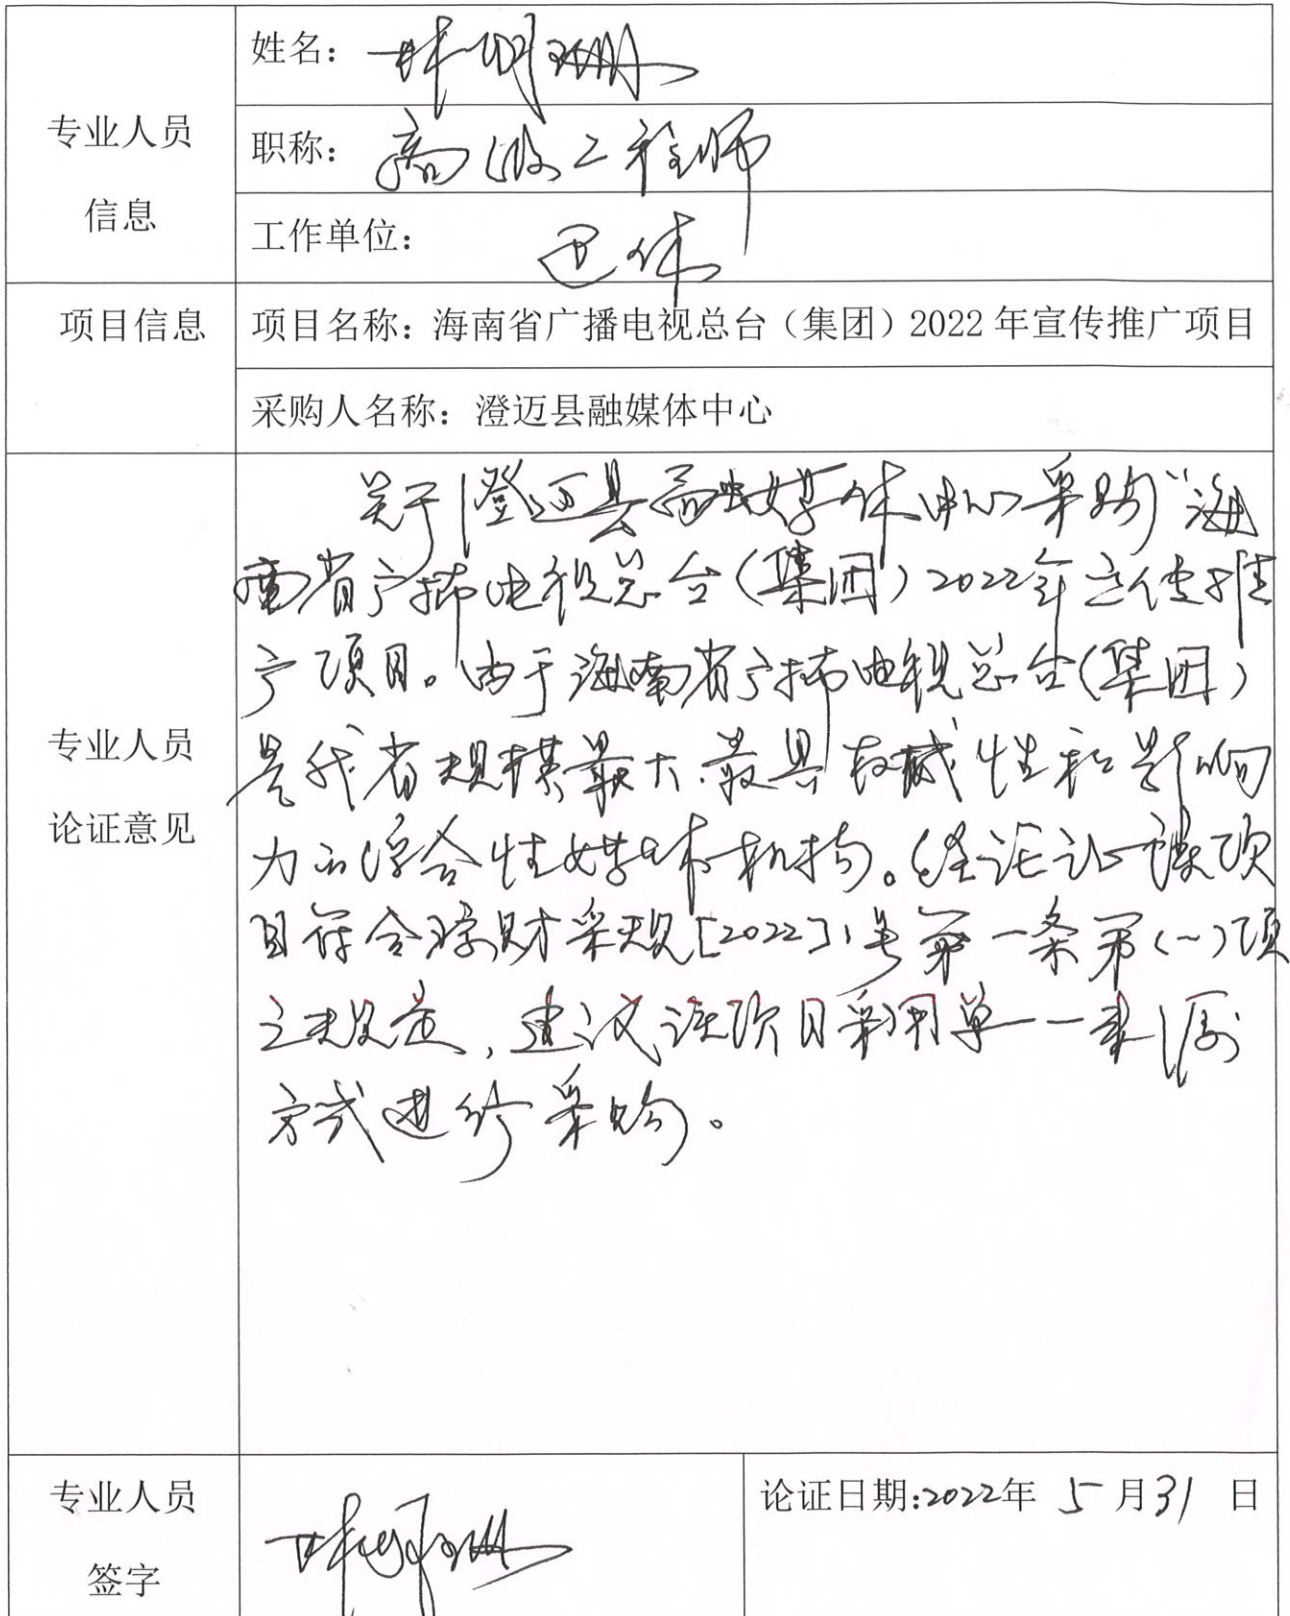 姓名：林明珊
专业人员
信息
职称：高级工程师
工作单位：退休
项目信息
项目名称：海南省广播电视总台（集团）2022 年宣传推广项目
采购人名称：澄迈县融媒体中心
专业人员
论证意见
关于澄迈县融媒体中心采购“海
南省广播电视总台（集团）2022年宣传推
广项目。由于海南省广播电视总台（集团）
是我省规模最大、最具权威性和影响
力的综合性媒体机构。经论证该项
目符合琼财采规[2022]1号第一条第(一)项
之规定，建议该项目采用单一来源
方式进行采购。
专业人员
签字
论证日期:2022年 5 月31 日